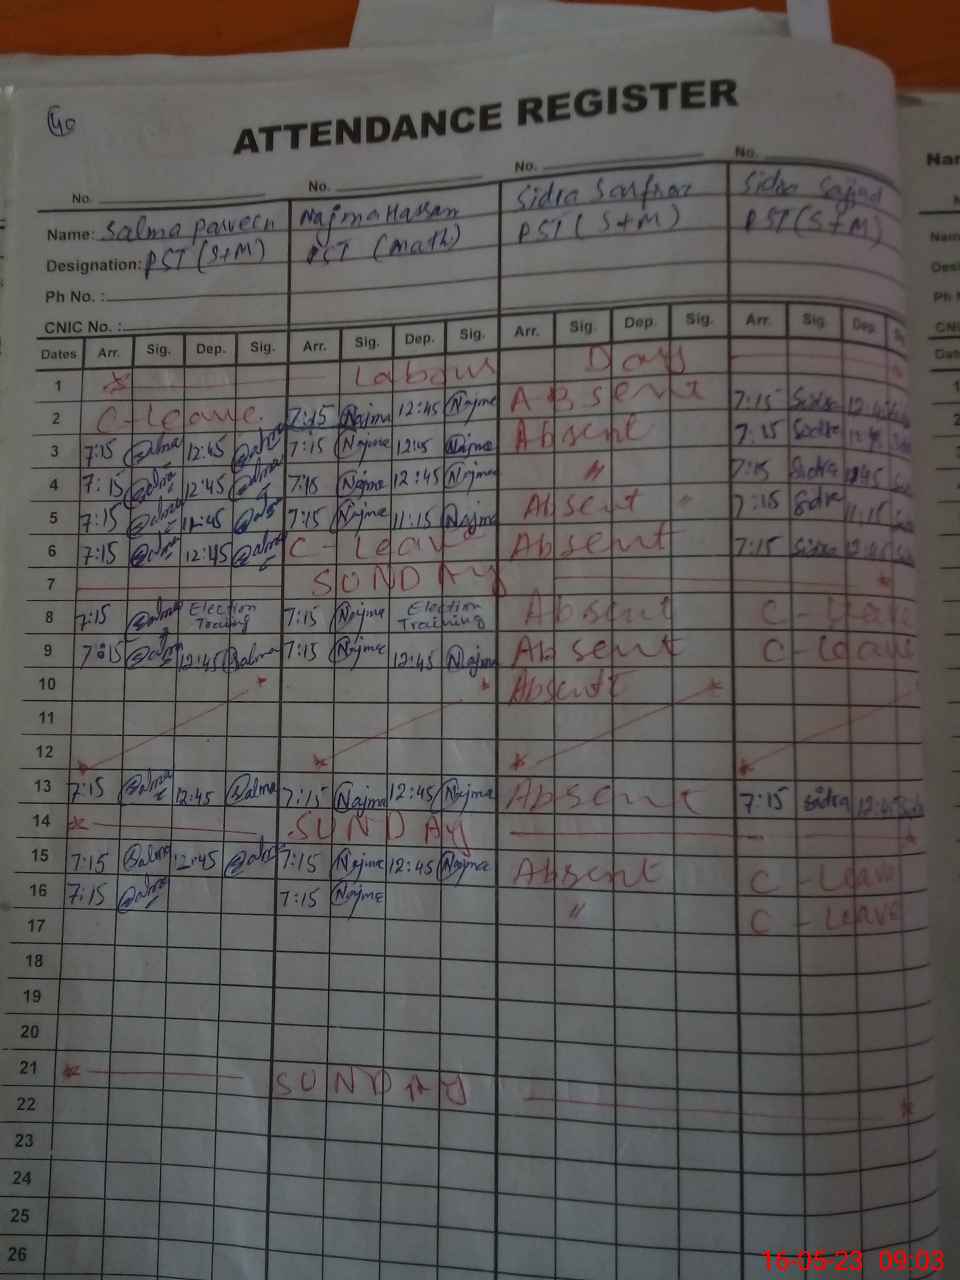 40
ATTENDANCE REGISTER
No. No. No. No.
Name: Salma Parveen Najma Hassan Sidra Sarfraz Sidra Sajjad
Designation: PST (S+M) PST (Math) PST (S+M) PST (S+M)
Ph No. :
CNIC No. :
Dates Arr. Sig. Dep. Sig. Arr. Sig. Dep. Sig. Arr. Sig. Dep. Sig. Arr. Sig. Dep.
1 Labour Day
2 C-Leave 7:15 Najma 12:45 Najma Absent 7:15 Sidra 12:45
3 7:15 Salma 12:45 Salma 7:15 Najma 12:45 Najma Absent 7:15 Sidra 12:45
4 7:15 Salma 12:45 Salma 7:15 Najma 12:45 Najma " 7:15 Sidra 12:45
5 7:15 Salma 7:15 Najma 11:15 Najma Absent 7:15 Sidra 11:15
6 7:15 Salma 12:45 Salma C-Leave Absent 7:15 Sidra 12:45
7 SUNDAY
8 7:15 Salma Election Training 7:15 Najma Election Training Absent C-Leave
9 7:15 Salma 12:45 Salma 7:15 Najma 12:45 Najma Absent C-Leave
10 Absent
11
12
13 7:15 Salma 12:45 Salma 7:15 Najma 12:45 Najma Absent 7:15 Sidra 12:45
14 SUNDAY
15 7:15 Salma 12:45 Salma 7:15 Najma 12:45 Najma Absent C-Leave
16 7:15 Salma 7:15 Najma " C-Leave
17
18
19
20
21 SUNDAY
22
23
24
25
26
16-05-23 09:03